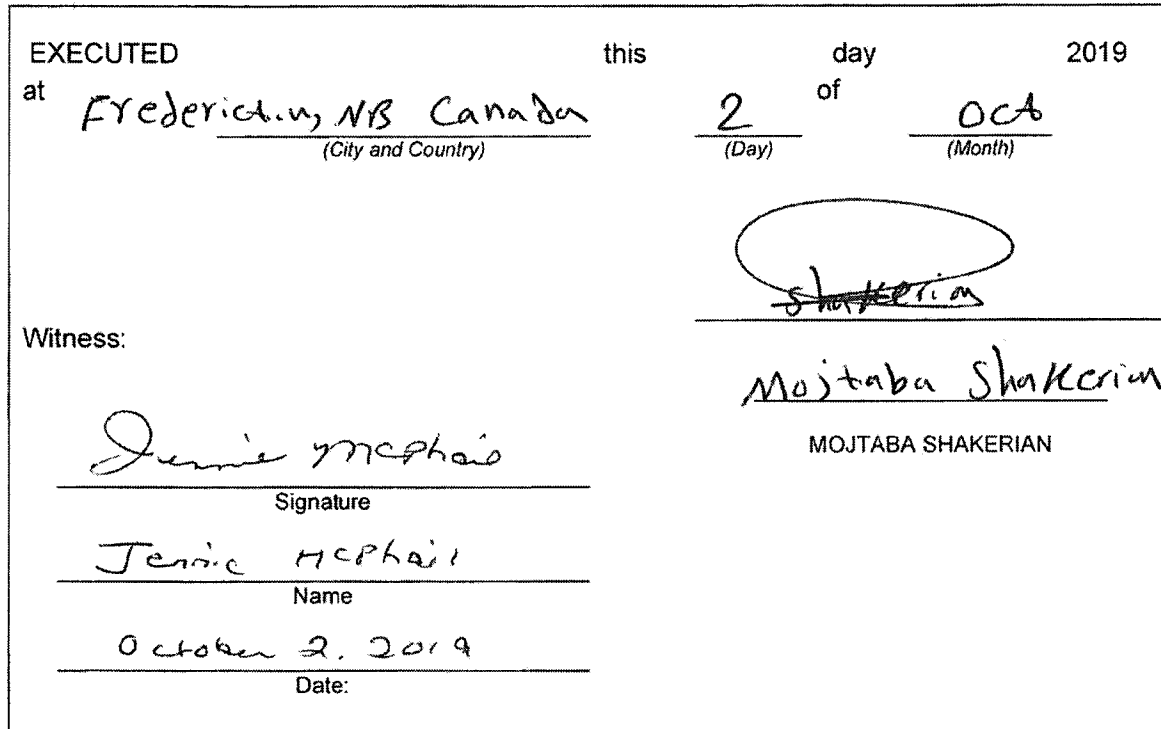 EXECUTED this day 2019
at Fredericton, NB Canada 2 of Oct
(City and Country) (Day) (Month)
Shakerian
Witness:
Mojtaba Shakerian
MOJTABA SHAKERIAN
Jennie McPhail
Signature
Jennie McPhail
Name
October 2. 2019
Date: